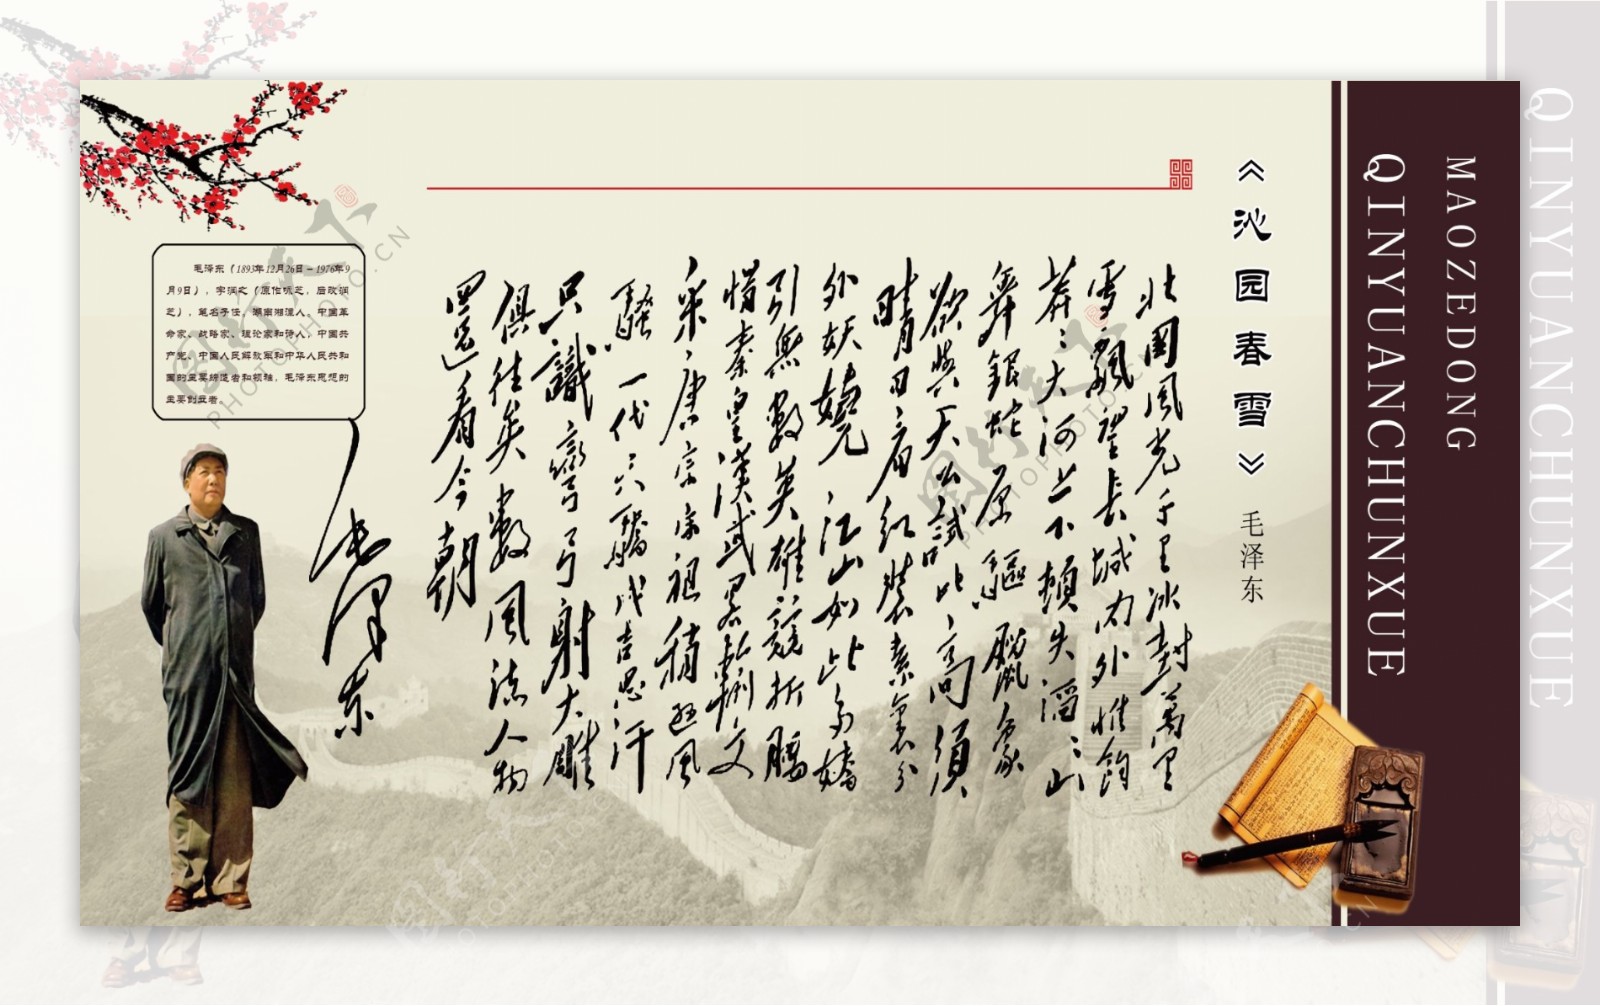 MAOZEDONG
QINYUANCHUNXUE
QINYUANCHUNXUE
《沁园春雪》
毛泽东
北國風光千里冰封萬里
雪飄望長城內外惟餘
莽莽大河上下頓失滔滔山
舞銀蛇原驅臘象
欲與天公試比高須
晴日看紅裝素裹分
外妖嬈江山如此多嬌
引無數英雄競折腰
惜秦皇漢武略輸文
采唐宗宋祖稍遜風
騷一代天驕成吉思汗
只識彎弓射大雕
俱往矣數風流人物
還看今朝
毛泽东（1893年12月26日－1976年9
月9日），字润之（原作咏芝，后改润
芝），笔名子任。湖南湘潭人。中国革
命家、战略家、理论家和诗人，中国共
产党、中国人民解放军和中华人民共和
国的主要缔造者和领袖，毛泽东思想的
主要创立者。
毛澤东
图行天下
PHOTOPHOTO.CN